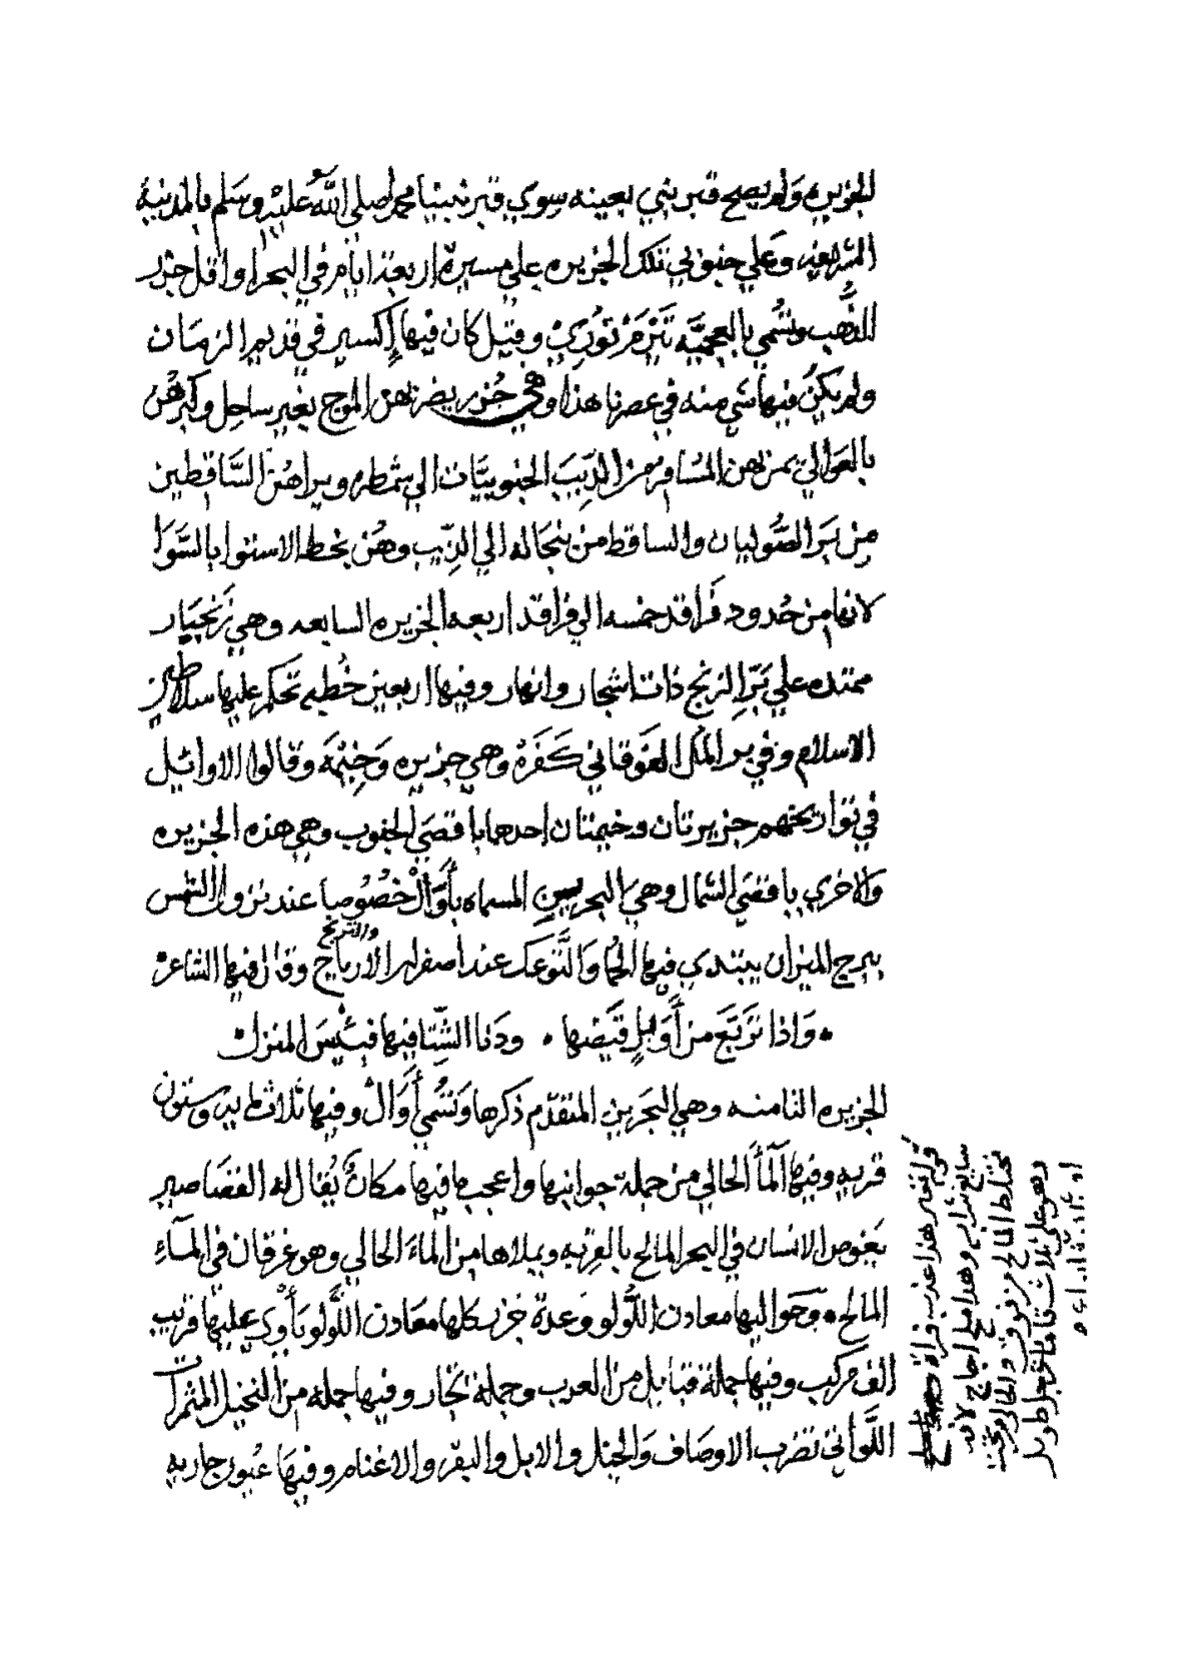 الجزيره ولم يصح قبر نبي بعينه سوي قبر نبينا محمد صلي اللّٰه عليه وسلم بالمدينة
الشريفه وعلي جنوبي تلك الجزيره علي مسيرة اربعة ايام في البحر اواقل جزر
الذَّهب وتُسمي بالعجميَّه وقيل كان فيها إكسير في قديم الزمان
ولم يكن فيها شي منه في عصرنا هذا وهي جُزر يضربهن الموج بغير ساحل وكبرهُن
بالعوالي يمر بهن المسافر من الدِّيب الجنوبيَّات الي شمطره ويراهُن السَّاقطين
من بَر الصُّوليان والساقط من بنجاله الي الدِّيب وهُن بخط الاستوا بالسَّوَا
لانها من حُدود فَراقد خمسه الي فراقد اربعه الجزيره السابعه وهي زنجبار
ممتده علي بَرِّ الزنج ذات اشجار وانهار وفيها اربعين خُطبه تحكم عليها سلاطين
الاسلام وفي بر المُل الفَوقاني كَفَرَة وهي جزيره وَخِيْمَه وقالوا الاوائيل
في تواريخهم جزيرتان وخيمتان احدهما باقصَي الجنوب وهي هذه الجزيره
والاخري باقصَي الشمال وهي البحرين المسماه بأَوَالْ خصُوصا عند نزول الشمس
ببرج الميزان يبتدي فيها الحُما والتَّوعك عند اصفرار الأرياح والترنج وقال فيها الشاعر
• وَاذا تَرَبَّعَ من أَوَايلِ قَيضها • ودَنا الشِّتا فيها فبئسَ المنزل •
الجزيره الثامنه وهي البحرين المتقدّم ذكرها وتسُمي أَوَالْ وفيها ثلاثمايه وستون
قريه وفيها المأ الحالي من جملة جوانبها واعجب ما فيها مكانٌ يُقال له القصَاصير
يَغوص الانسان في البحر المالح بالقربه ويملاها من الماءَ الحالي وهو غرقان في المآءِ
المالح • وحَواليها معادن اللُّولو وَعدة جُزر كلها معَادن اللُّولو يَأوي عليها قريب
الف مركب وفيها جملة قبايل من العرب وجملة تجّار وفيها جمله من النخيل المثمرات
اللَّواتي تضرب الاوصاف والخيل والابل والبقر والاغنام وفيها عُيون جاريه
قوله تعالي هذا عذب فرات
سايغ شرابه وهذا ملح اجاج لانه
يختلط المالح من فوق والحالي من تحت
وهو علي ثلاث قامات